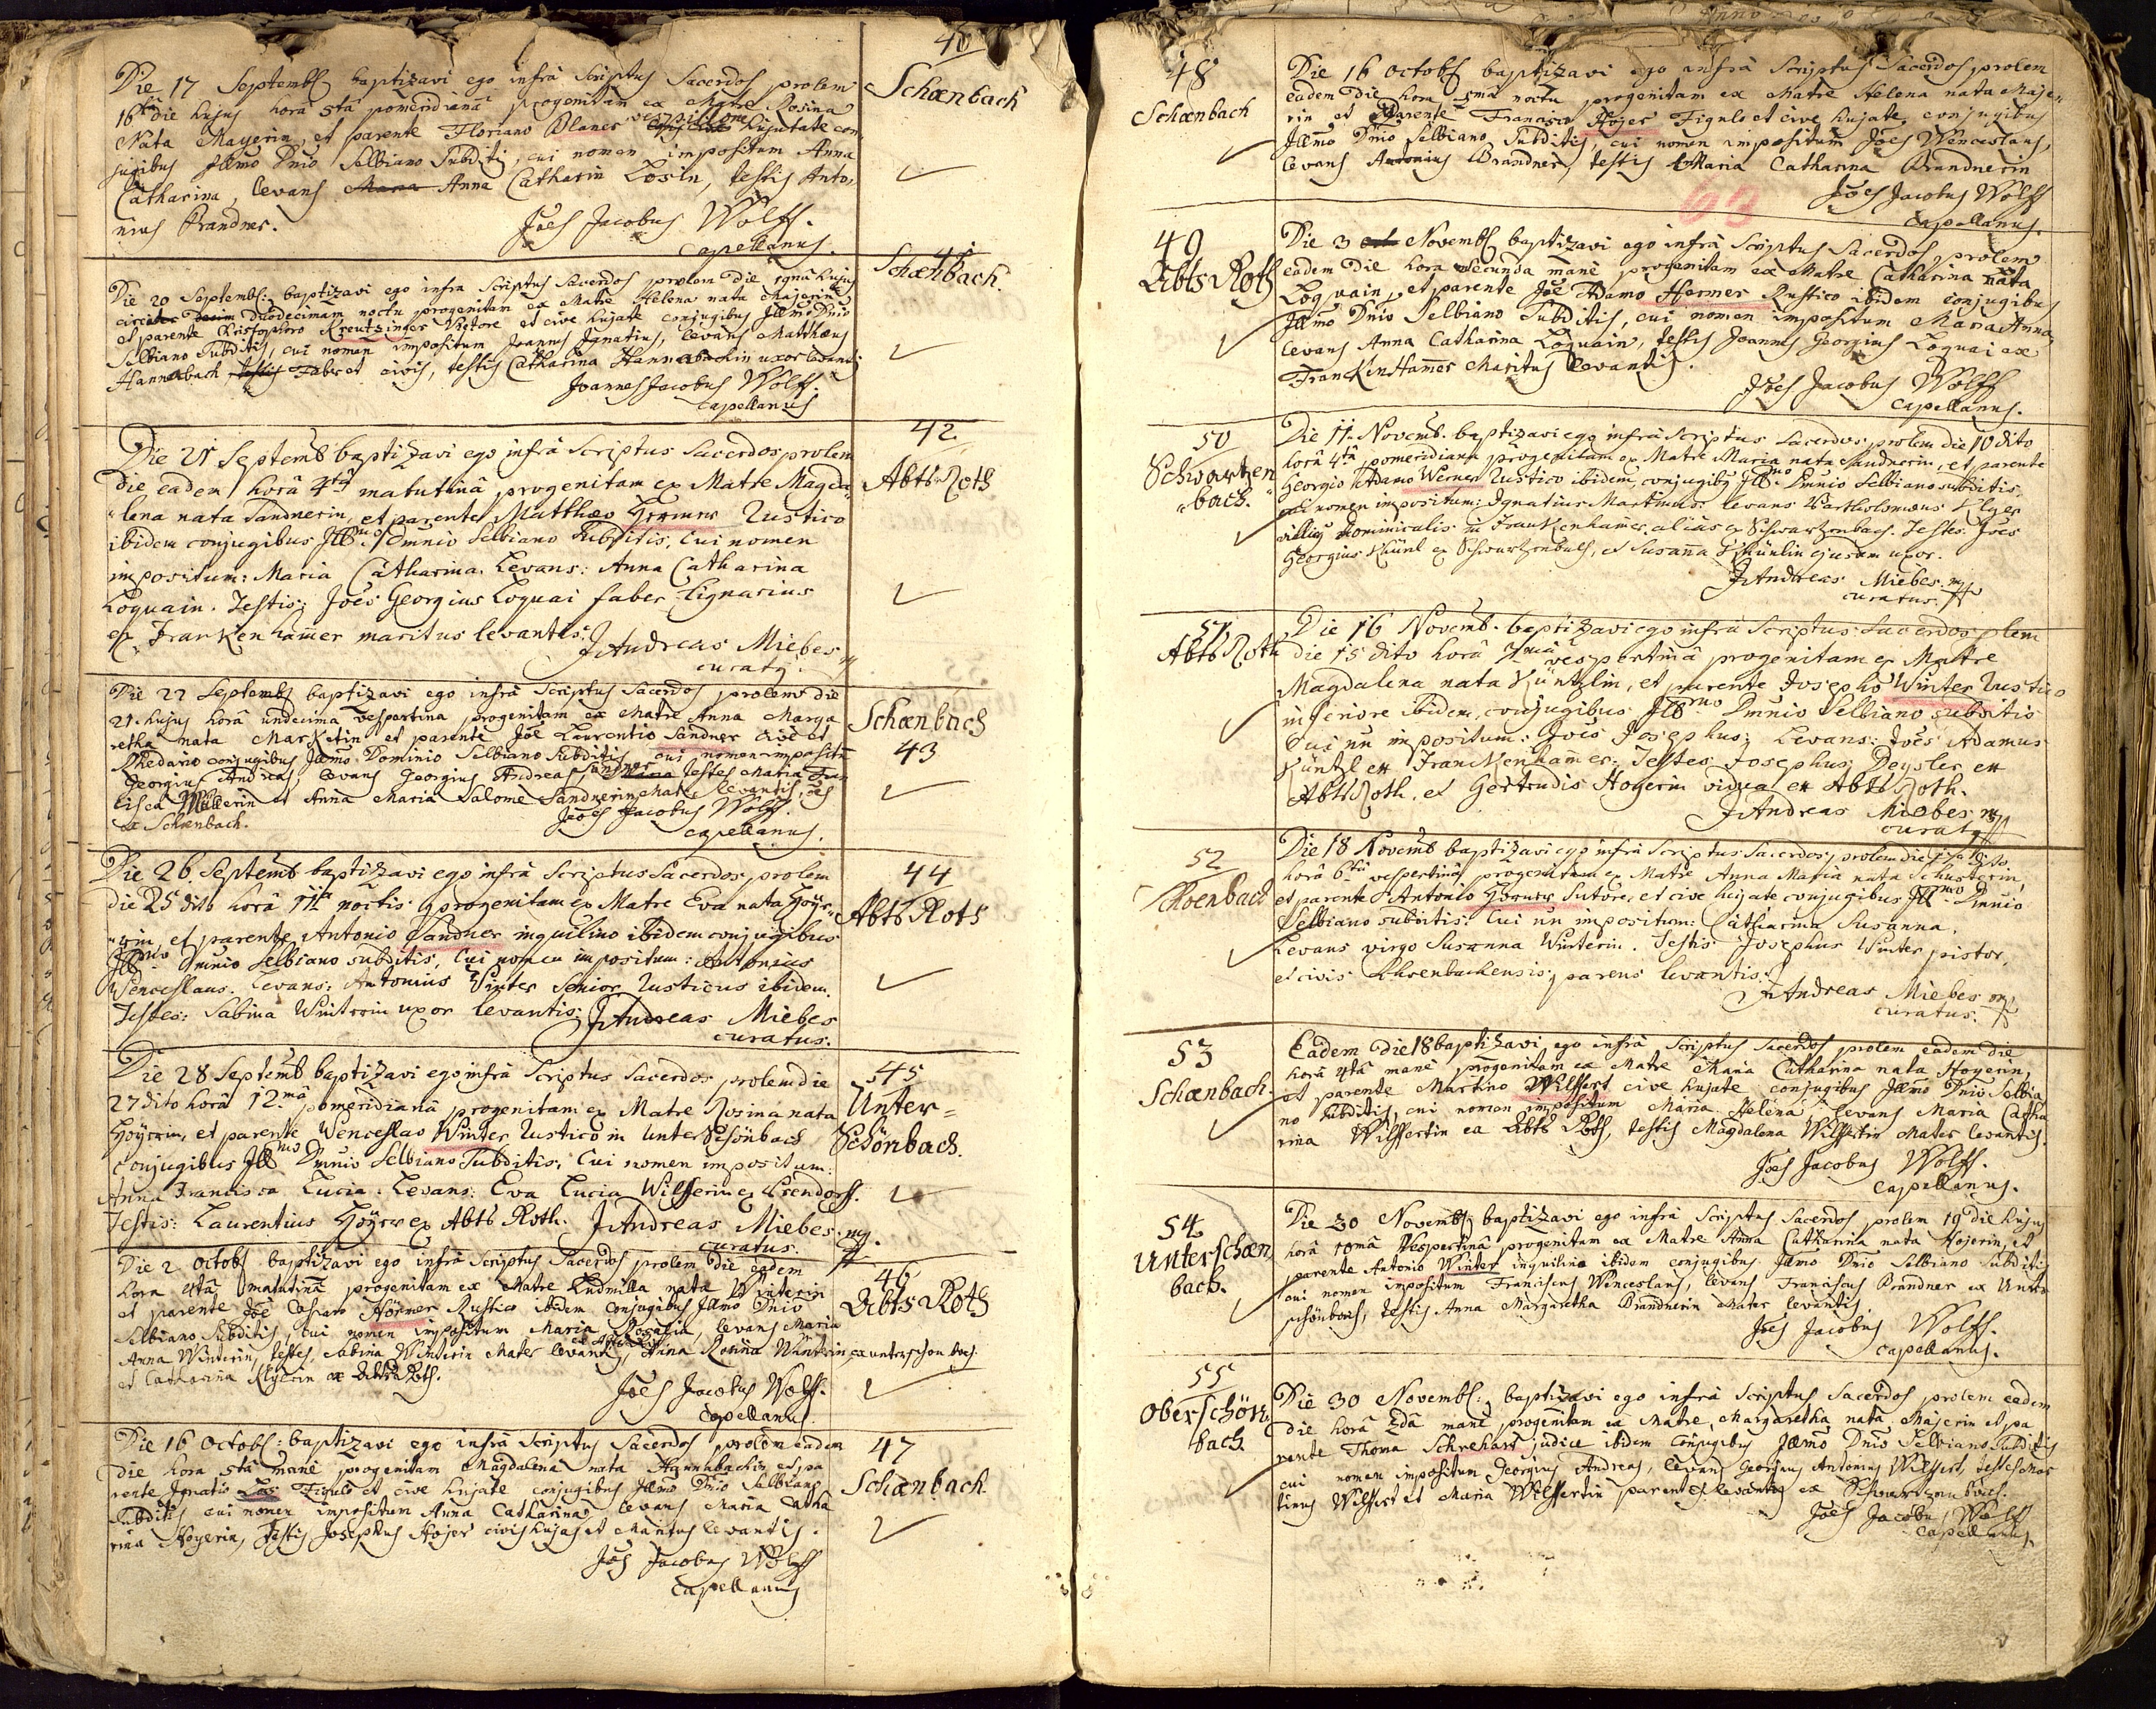 40
Schœnbach
Die 17 Septembr baptizavi ego infrà Scriptus Sacerdos prolem
16ta die hujus horâ 5tâ pomeridianâ progenitam ex Matre Rosina
Nata Mayerin, et parente Floriano Blaner vespillone hujate con
jugibus Jllmo Dnio Selbiano Subditis, cui nomen impositum Anna
Catharina, levans Maria Anna Catharin Losin, testis Anto,
nius Brandner.
Jōes Jacobus Wolff.
Capellanus.
41
Schœnbach.
Die 20 Septembr: baptizavi ego infra Scriptus Sacerdos prolem die hujus
circiter duodecimam noctu progenitam ex Matre Helena nata Majerin
et parente Christophoro Kreutzinger Vietore et cive hujate conjugibus Jllmo Dnio
Selbiano Subditis, cui nomen impositum Joannes Jgnatius, levans Matthæus
Hannabach, testis Faber et civis, testis Catharina Hannabachin uxor levantis
Joannes Jacobus Wolff.
Capellanus
42
Abts Roth
Die 21 Septemb baptizavi ego infrà Scriptus Sacerdos prolem
die eadem horâ 4tâ matutinâ progenitam ex Matre Magda„
„lena nata Sandnerin, et parente Matthæo Hermer Rustico
ibidem conjugibus Jllmo Dmnio Selbiano Subditis, Cui nomen
impositum: Maria Catharina. Levans: Anna Catharina
Loquain. Testis: Joēs Georgius Loquai faber Lignarius
ex Frankenham̄er maritus levantis.
J Andreas Miebes
curatq.
Schœnbach
43
Die 22 Septembr baptizavi ego infrà Scriptus Sacerdos prolem die
21. hujus horâ undecima vespertina progenitam ex Matre Anna Marga
retha nata Marketin et parente Jōe Laurentio Sandner cive et
Rhedario conjugibus Jllmo Dominio Selbiano Subditis cui nomen impositū
Georgius Andreas, levans Georgius Andreas Sandner testes Maria Fran
cisca Müllerin et Anna Maria Salome Sandnerin Mater levantis, oēs
ex Schœnbach.
Jōes Jacobus Wolff.
Capellanus.
44
Abts Roth
Die 26 Septemb baptizavi ego infrà Scriptus Sacerdos prolem
die 25 dito horâ 11a noctis progenitam ex Matre Eva nata Hoÿe„
„rin, et parente Antonio Sandner inquilino ibidem conjugibus
Jllmo Dmnio Selbiano subditis, Cui nomen impositum: Antonius
Wenceslaus. Levans: Antonius Winter Senior Rusticus ibidem.
Testes: Sabina Winterin uxor levantis:
J Andreas Miebes
curatus.
45
Unter=
Schönbach.
Die 28 Septemb baptizavi ego infrà Scriptus Sacerdos prolem die
27 dito horâ 12ma pomeridianâ progenitam ex Matre Rosina nata
Hoÿerin, et parente Wenceslao Winter Rustico in Unter Schönbach
Conjugibus Jllmo Dmnio Selbiano Subditis, Cui nomen impositum:
Anna Francisca Lucia. Levans: Eva Lucia Wilfferin ex Ermdorff.
Testis: Laurentius Hoÿer ex Abts Roth.
J Andreas Miebes. mp.
curatus.
46
Abts Roth
Die 2 Octobr baptizavi ego infrà Scriptus Sacerdos prolem die eadem
hora 4tâ matutinâ progenitam ex Matre Ludmilla nata Winterin
et parente Jōe Casparo Hörmer Rustico ibidem conjugibus Jllmo Dnio
Selbiano Subditis, cui nomen impositum Maria Rosalia, levans Maria
Anna Winterin, testes, Sabina Winterin Mater levantis, Anna Rosina Winterin, ex unterschönbach
et Catharina Klÿerin ex AbtsRoth.
Jōes Jacobus Wolff.
Capellanus.
47
Schœnbach.
Die 16 Octobr: baptizavi ego infrà Scriptus Sacerdos prolem eadem
die hora 5ta manè progenitam Magdalena nata Hannabachin, et pa
rente Jgnatio Figulo et cive hujate conjugibus Jllmo Dnio Selbiano
Subditis, cui nomen impositum Anna Catharina, levans Maria Catha
rina Hoyerin, testis Josephus Hojer civis hujas et Maritus levantis.
Jōes Jacobus Wolff
Capellanus
48
Schœnbach
Die 16 Octobr baptizavi ego infrà Scriptus Sacerdos prolem
eadem die hora noctu progenitam ex Matre Helena nata Maje,
rin et Parente Francisco Hojer Figulo et cive hujate, conjugibus
Jllmo Dnio Selbiano Subditis, cui nomen impositum Jōes Wenceslaus,
levans Antonius Brandner, testis Maria Catharina Brandnerin
63
Jōes Jacobus Wolff
Capellanus.
49
Abts Roth
Die 3 Novembr baptizavi ego infrà Scriptus Sacerdos prolem
eadem die hora secunda manè progenitam ex Matre Catharina nata
Loquain, et parente Jōe Adamo Hermer Rustico ibidem conjugibus
Jllmo Dnio Selbiano Subditis, cui nomen impositum Maria Anna,
levans Anna Catharina Loquain, testis Joannes Georgius Loquai ex
FranckinHam̄er Maritus levantis.
Jōes Jacobus Wolff
Capellanus.
50
Schwartzen
„bach.
Die 11. Novemb. baptizavi ego infrà Scriptus Sacerdos prolem die 10 dito
horâ 4tâ pomeridiana progenitam ex Matre Maria nata Sandnerin, et parente
Georgio Adamo Werner Rustico ibidem, conjugibq Jllmo Dmnio Selbiano subditis,
cui nomen impositum: Jgnatius Martinus. levans Bartholomæus Ilger
villicq Dominicalis in Frankenham̄er, alias ex Schwartzenbach. Testes: Joēs
Georgius Khünl ex Schwartzenbach, et Susan̄a Khünlin ejusdem uxor.
J Andreas Miebes. mp
curatus.
51
Abts Roth
Die 16 Novemb. baptizavi ego infrà Scriptus Sacerdos plem
die 15 dito horâ 7mâ vespertinâ progenitam ex Matre
Magdalena nata Küntzlin, et parente Josepho Winter Rustico
inferiore ibidem, conjugibus Jllrmo Dmnio Selbiano subditis
Cui nn impositum: Joēs Josephus. Levans: Joēs Adamus
Küntzl ex Franckenham̄er: Testes Josephus Deysler ex
Abts Roth, et Gertrudis Hoyerin vidua ex Abts Roth.
J Andreas Miebes mp
curatq
52
Schoenbach
Die 18 Novemb baptizavi ego infrà Scriptus Sacerdos, prolem die 17 dito
horâ 6tâ vespertinâ progenitam ex Matre Anna Maria nata Schusterin,
et parente Antonio Hermer Sutore, et cive hujate conjugibus Jllmo Dmnio
Selbiano subditis: Cui nn impositum: Catharina Susanna.
Levans virgo Susanna Winterin. Testis Josephus Winter pistor,
et civis Schoenbachensis, parens levantis.
J Andreas Miebes mp
curatus.
53
Schœnbach.
Eadem die 18 baptizavi ego infrà Scriptus Sacerdos prolem eadem die
horâ 4tâ manè progenitam ex Matre Maria Catharina nata Hoyerin,
et parente Martino Wilffert cive hujate conjugibus Jllmo Dnio Selbia
no Subditis, cui nomen impositum Maria Helena, levans Maria Catha
rina Wilffertin ex Abts Roth, testis Magdalena Wilffertin Mater levantis.
Jōes Jacobus Wolff.
Capellanus.
54
Unterschœn
bach.
Die 20 Novembr baptizavi ego infrà Scriptus Sacerdos prolem 19 die hujus
horâ 10mâ Vespertinâ progenitam ex Matre Anna Catharina nata Hojerin, et
parente Antonio Winter inquilino ibidem conjugibus Jllmo Dnio Selbiano Subditis
cui nomen impositum Franciscus Wenceslaus, levans Franciscus Brandner ex Unter
schönbach, testis Anna Margaretha Brandnerin Mater levantis.
Jōes Jacobus Wolff.
Capellanus.
55
Oberschön
bach.
Die 30 Novembr: baptizavi ego infrà Scriptus Sacerdos prolem eadem
die horâ 2dâ manè progenitam ex Matre Margaretha nata Majerin et pa
rente Thoma Schrekart judice ibidem conjugibus Jllmo Dnio Selbiano Subditis
cui nomen impositum Georgius Andreas, levans Georgius Antonius Wilffert, testes Mar
tinus Wilffert et Maria Wilffertin parentes levantis ex Schwartzenbach.
Jōes Jacobus Wolff
Capellanus.